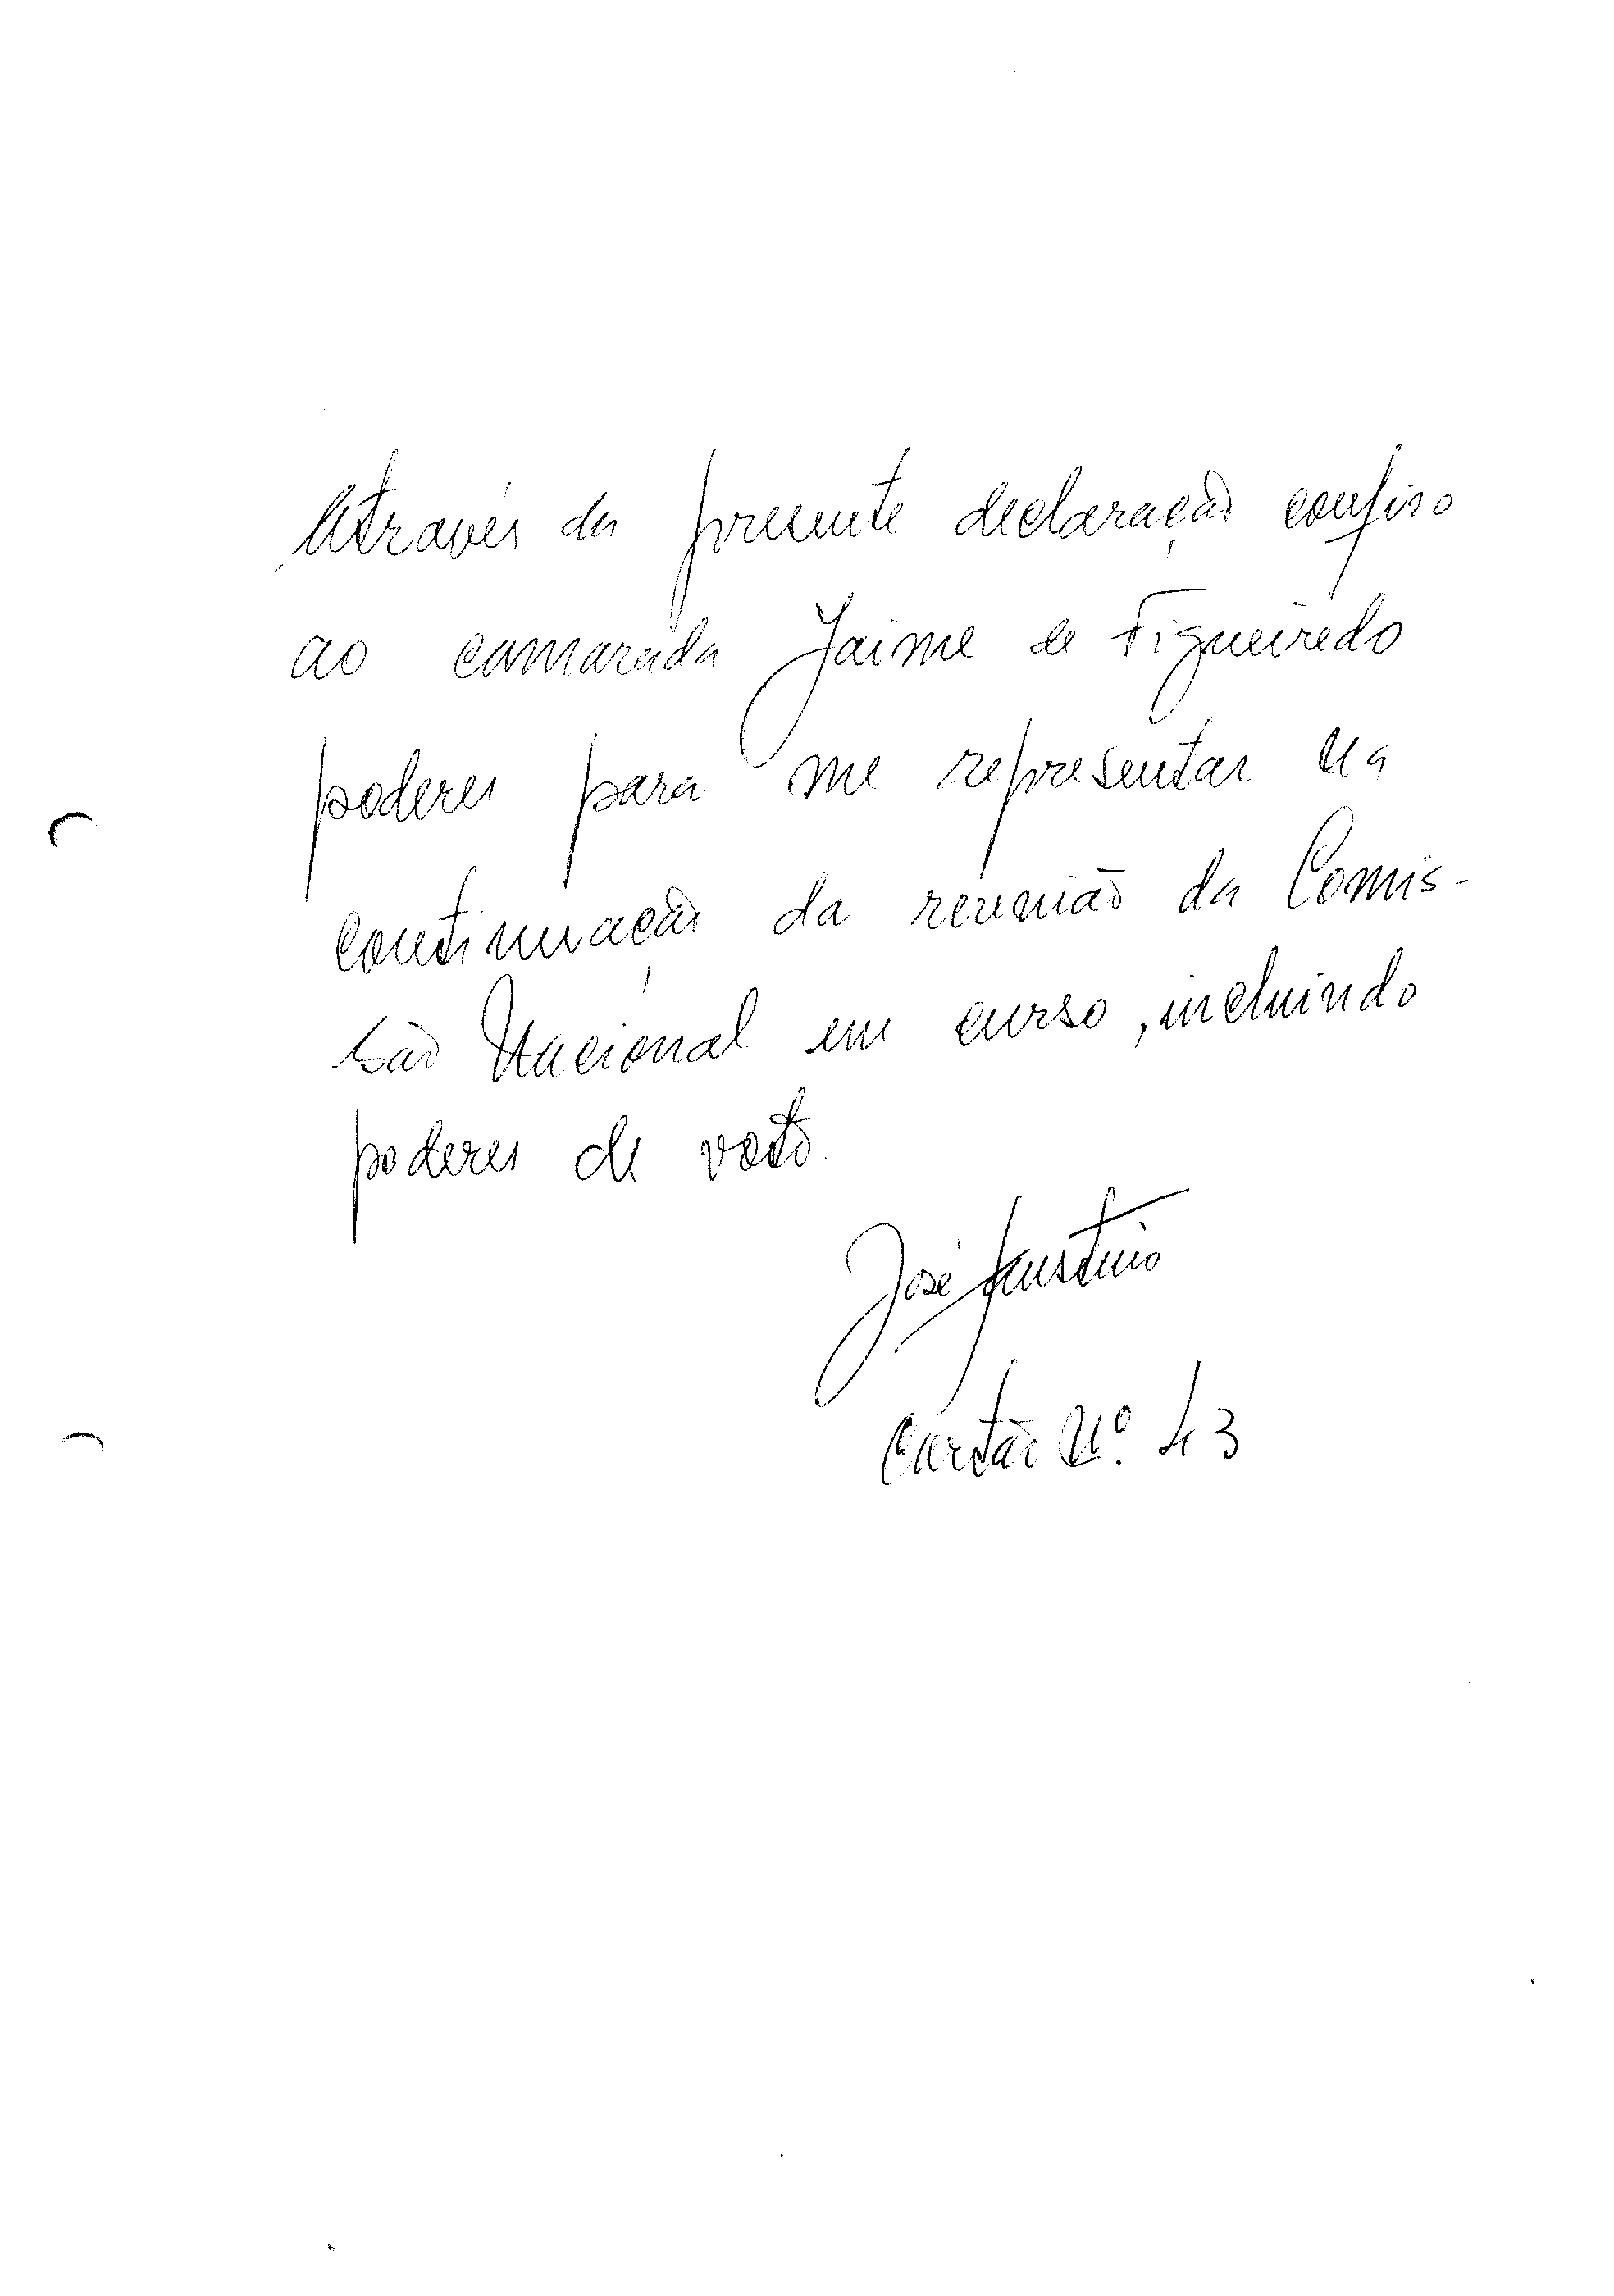 Através da presente declaração confiro
ao camarada Jaime de Figueiredo
poderes para me representar na
continuação da reunião da Comis-
são Nacional em curso, incluindo
poderes de voto.
José Faustino
Cartão Nº. 43